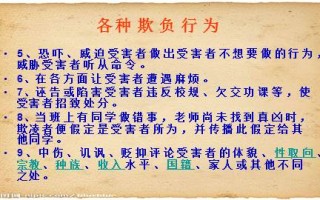 各种欺负行为
• 5、恐吓、威迫受害者做出受害者不想要做的行为，
威胁受害者听从命令。
• 6、在各方面让受害者遭遇麻烦。
• 7、诬告或陷害受害者违反校规、欠交功课等，使
受害者招致处分。
• 8、当班上有同学做错事，老师尚未找到真凶时，
欺凌者便假定是受害者所为，并传播此假定给其
他同学。
• 9、中伤、讥讽、贬抑评论受害者的体貌、性取向、
宗教、种族、收入水平、国籍、家人或其他不同
之处。